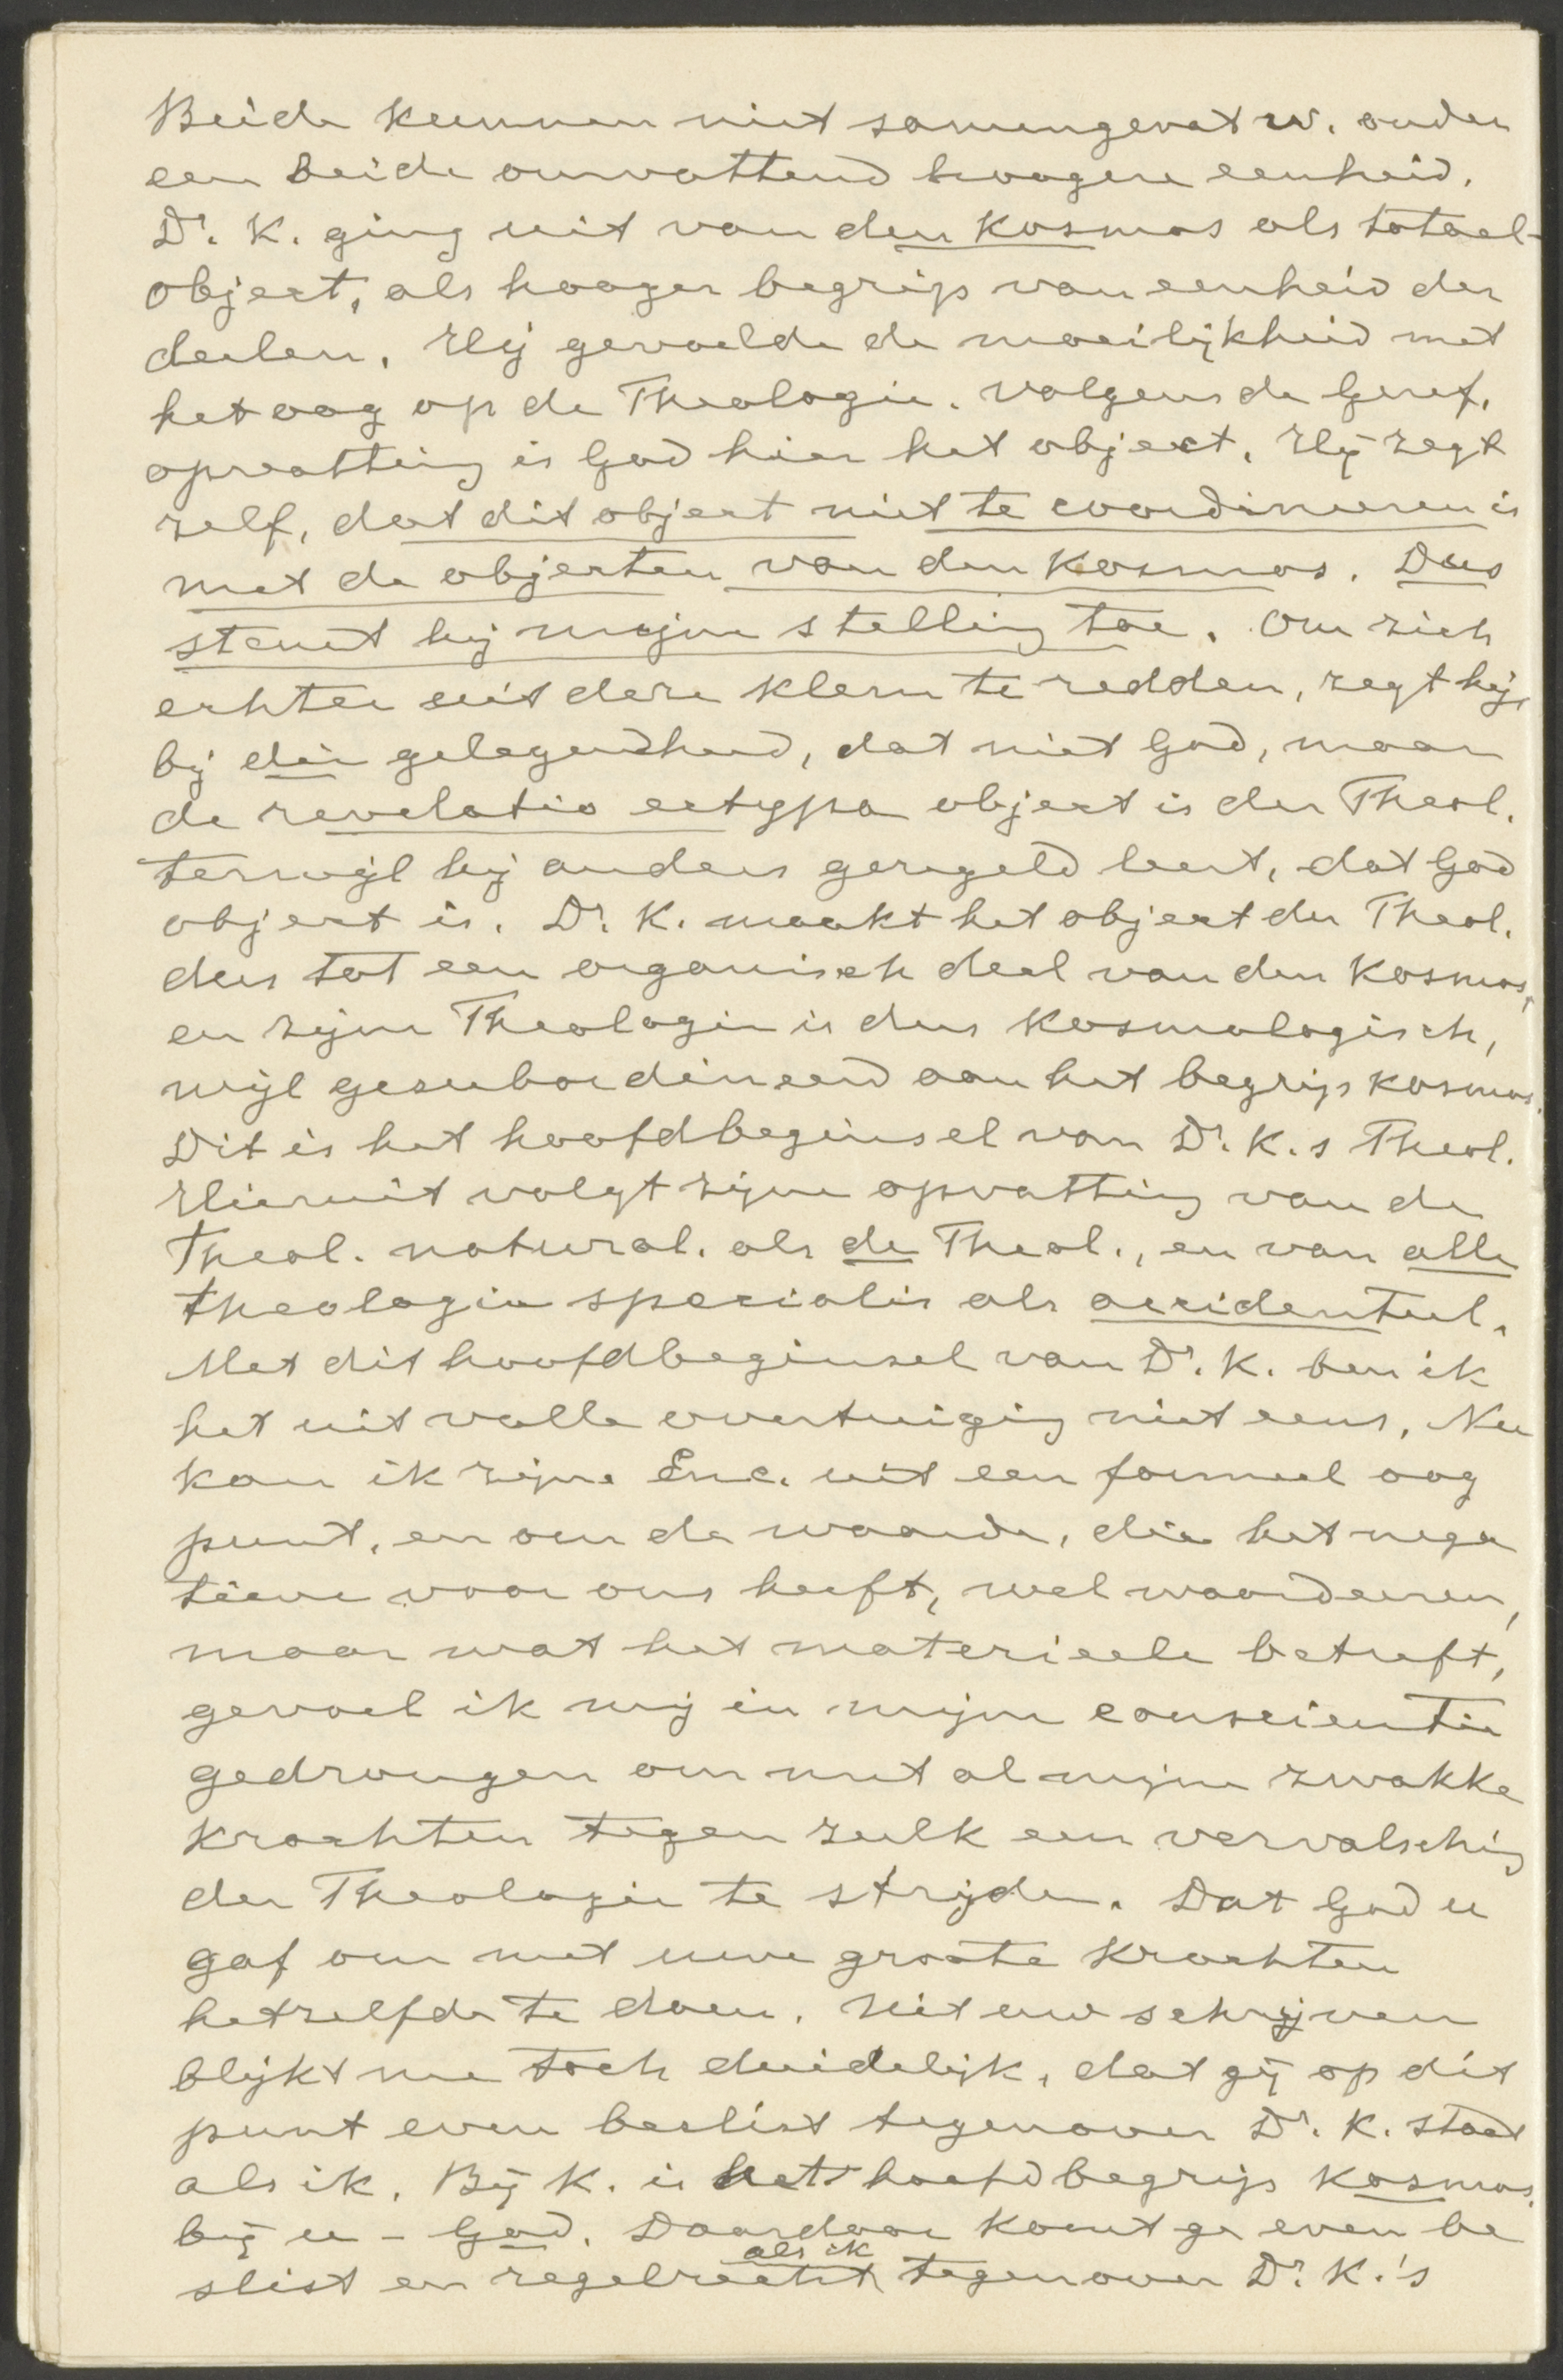 Beide kunnen niet samengevat w. onder
een beide omvattend hoogere eenheid.
Dr. K. ging uit van den Kosmos als totaal-
object, als hooger begrip van eenheid der
deelen. Hij gevoelde de moeilijkheid met
het oog op de Theologie. Volgens de Geref.
opvatting is God hier het object. Hij zegt
zelf, dat dit object niet te coordineeren is
met de objecten van den Kosmos. Dus
stemt hij mijne stelling toe. Om zich
echter uit deze klem te redden, zegt hij,
bij die gelegendheid, dat niet God, maar
de revelatio ectypa object is der Theol.
terwijl hij anders geregeld leert, dat God
object is. Dr. K. maakt het object der Theol.
dus tot een organisch deel van den Kosmos,
en zijne Theologie is dus Kosmologisch,
wijl gesubordineerd aan het begrip Kosmos.
Dit is het hoofdbeginsel van Dr. K.s Theol.
Hieruit volgt zijne opvatting van de
Theol. natural. als de Theol., en van alle
theologia specialis als accidenteel.
Met dit hoofdbeginsel van Dr. K. ben ik
het uit volle overtuiging niet eens. Nu
kan ik zijne Enc. uit een formeel oog
punt, en om de waarde, die het nega
tieve voor ons heeft, wel waardeeren,
maar wat het materieele betreft,
gevoel ik mij in mijne conscientie
gedrongen om met al mijne zwakke
krachten tegen zulk een vervalsching
der Theologie te strijden. Dat God u
gaf om met uwe groote krachten
hetzelfde te doen. Uit uw schrijven
blijkt me toch duidelijk, dat gij op dit
punt even beslist tegenover Dr. K. staat
als ik. Bij K. is het hoofdbegrip Kosmos,
bij u - God. Daardoor komt ge even be
als ik
slist en regelrecht tegenover Dr. K.'s